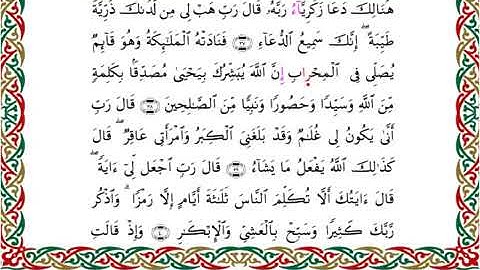 هُنَالِكَ دَعَا زَكَرِيَّآءُ رَبَّهُۥ قَالَ رَبِّ هَبْ لِى مِن لَّدُنكَ ذُرِّيَّةً
طَيِّبَةً ۖ إِنَّكَ سَمِيعُ ٱلدُّعَآءِ ۝٣٧ فَنَادَتْهُ ٱلْمَلَٰٓئِكَةُ وَهُوَ قَآئِمٌ
يُصَلِّى فِى ٱلْمِحْرَابِ إِنَّ ٱللَّهَ يُبَشِّرُكَ بِيَحْيَىٰ مُصَدِّقًۢا بِكَلِمَةٍ
مِّنَ ٱللَّهِ وَسَيِّدًا وَحَصُورًا وَنَبِيًّا مِّنَ ٱلصَّٰلِحِينَ ۝٣٨ قَالَ رَبِّ
أَنَّىٰ يَكُونُ لِى غُلَٰمٌ وَقَدْ بَلَغَنِىَ ٱلْكِبَرُ وَٱمْرَأَتِى عَاقِرٌ ۖ قَالَ
كَذَٰلِكَ ٱللَّهُ يَفْعَلُ مَا يَشَآءُ ۝٣٩ قَالَ رَبِّ ٱجْعَل لِّىٓ ءَايَةً ۖ
قَالَ ءَايَتُكَ أَلَّا تُكَلِّمَ ٱلنَّاسَ ثَلَٰثَةَ أَيَّامٍ إِلَّا رَمْزًا ۗ وَٱذْكُر
رَّبَّكَ كَثِيرًا وَسَبِّحْ بِٱلْعَشِىِّ وَٱلْإِبْكَٰرِ ۝٤٠ وَإِذْ قَالَتِ